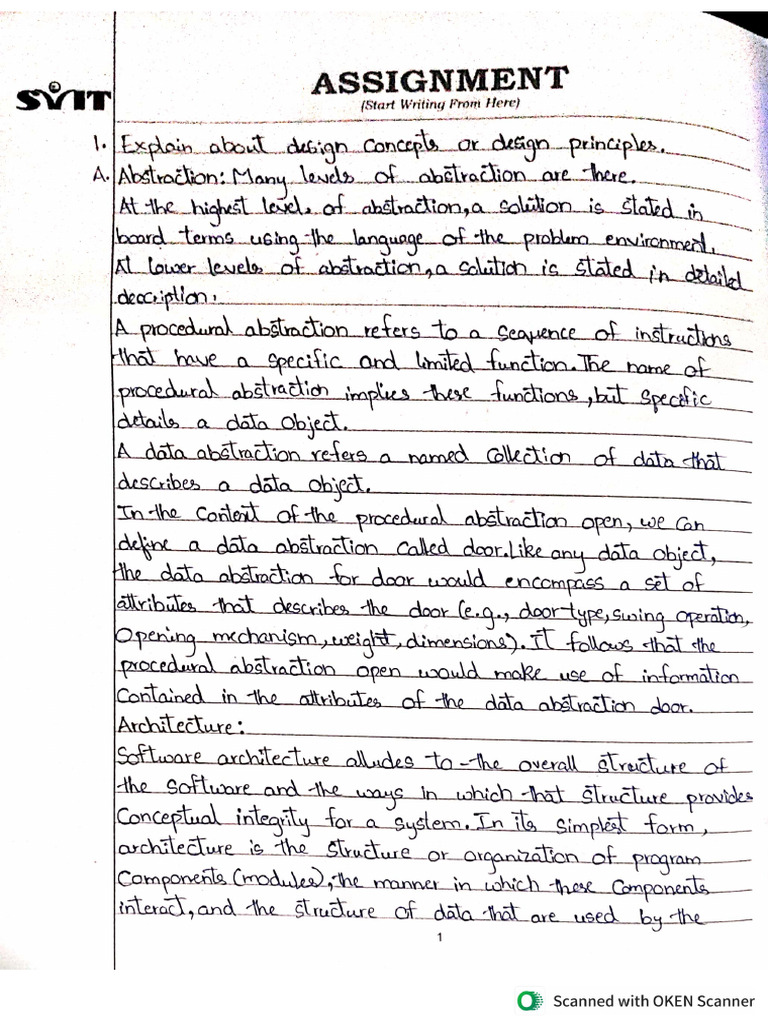 SVIT
ASSIGNMENT
(Start Writing From Here)
1. Explain about design concepts or design principles.
A. Abstraction: Many levels of abstraction are there.
At the highest level, of abstraction, a solution is stated in
board terms using the language of the problem environment.
At lower levels of abstraction, a solution is stated in detailed
description.
A procedural abstraction refers to a sequence of instructions
that have a specific and limited function. The name of
procedural abstraction implies these functions, but specific
details a data object.
A data abstraction refers a named collection of data that
describes a data object.
In the context of the procedural abstraction open, we can
define a data abstraction called door. Like any data object,
the data abstraction for door would encompass a set of
attributes that describes the door (e.g., door type, swing operation,
opening mechanism, weight, dimensions). It follows that the
procedural abstraction open would make use of information
contained in the attributes of the data abstraction door.
Architecture:
Software architecture alludes to the overall structure of
the software and the ways in which that structure provides
conceptual integrity for a system. In its simplest form,
architecture is the structure or organization of program
components (modules), the manner in which these components
interact, and the structure of data that are used by the
1
Scanned with OKEN Scanner